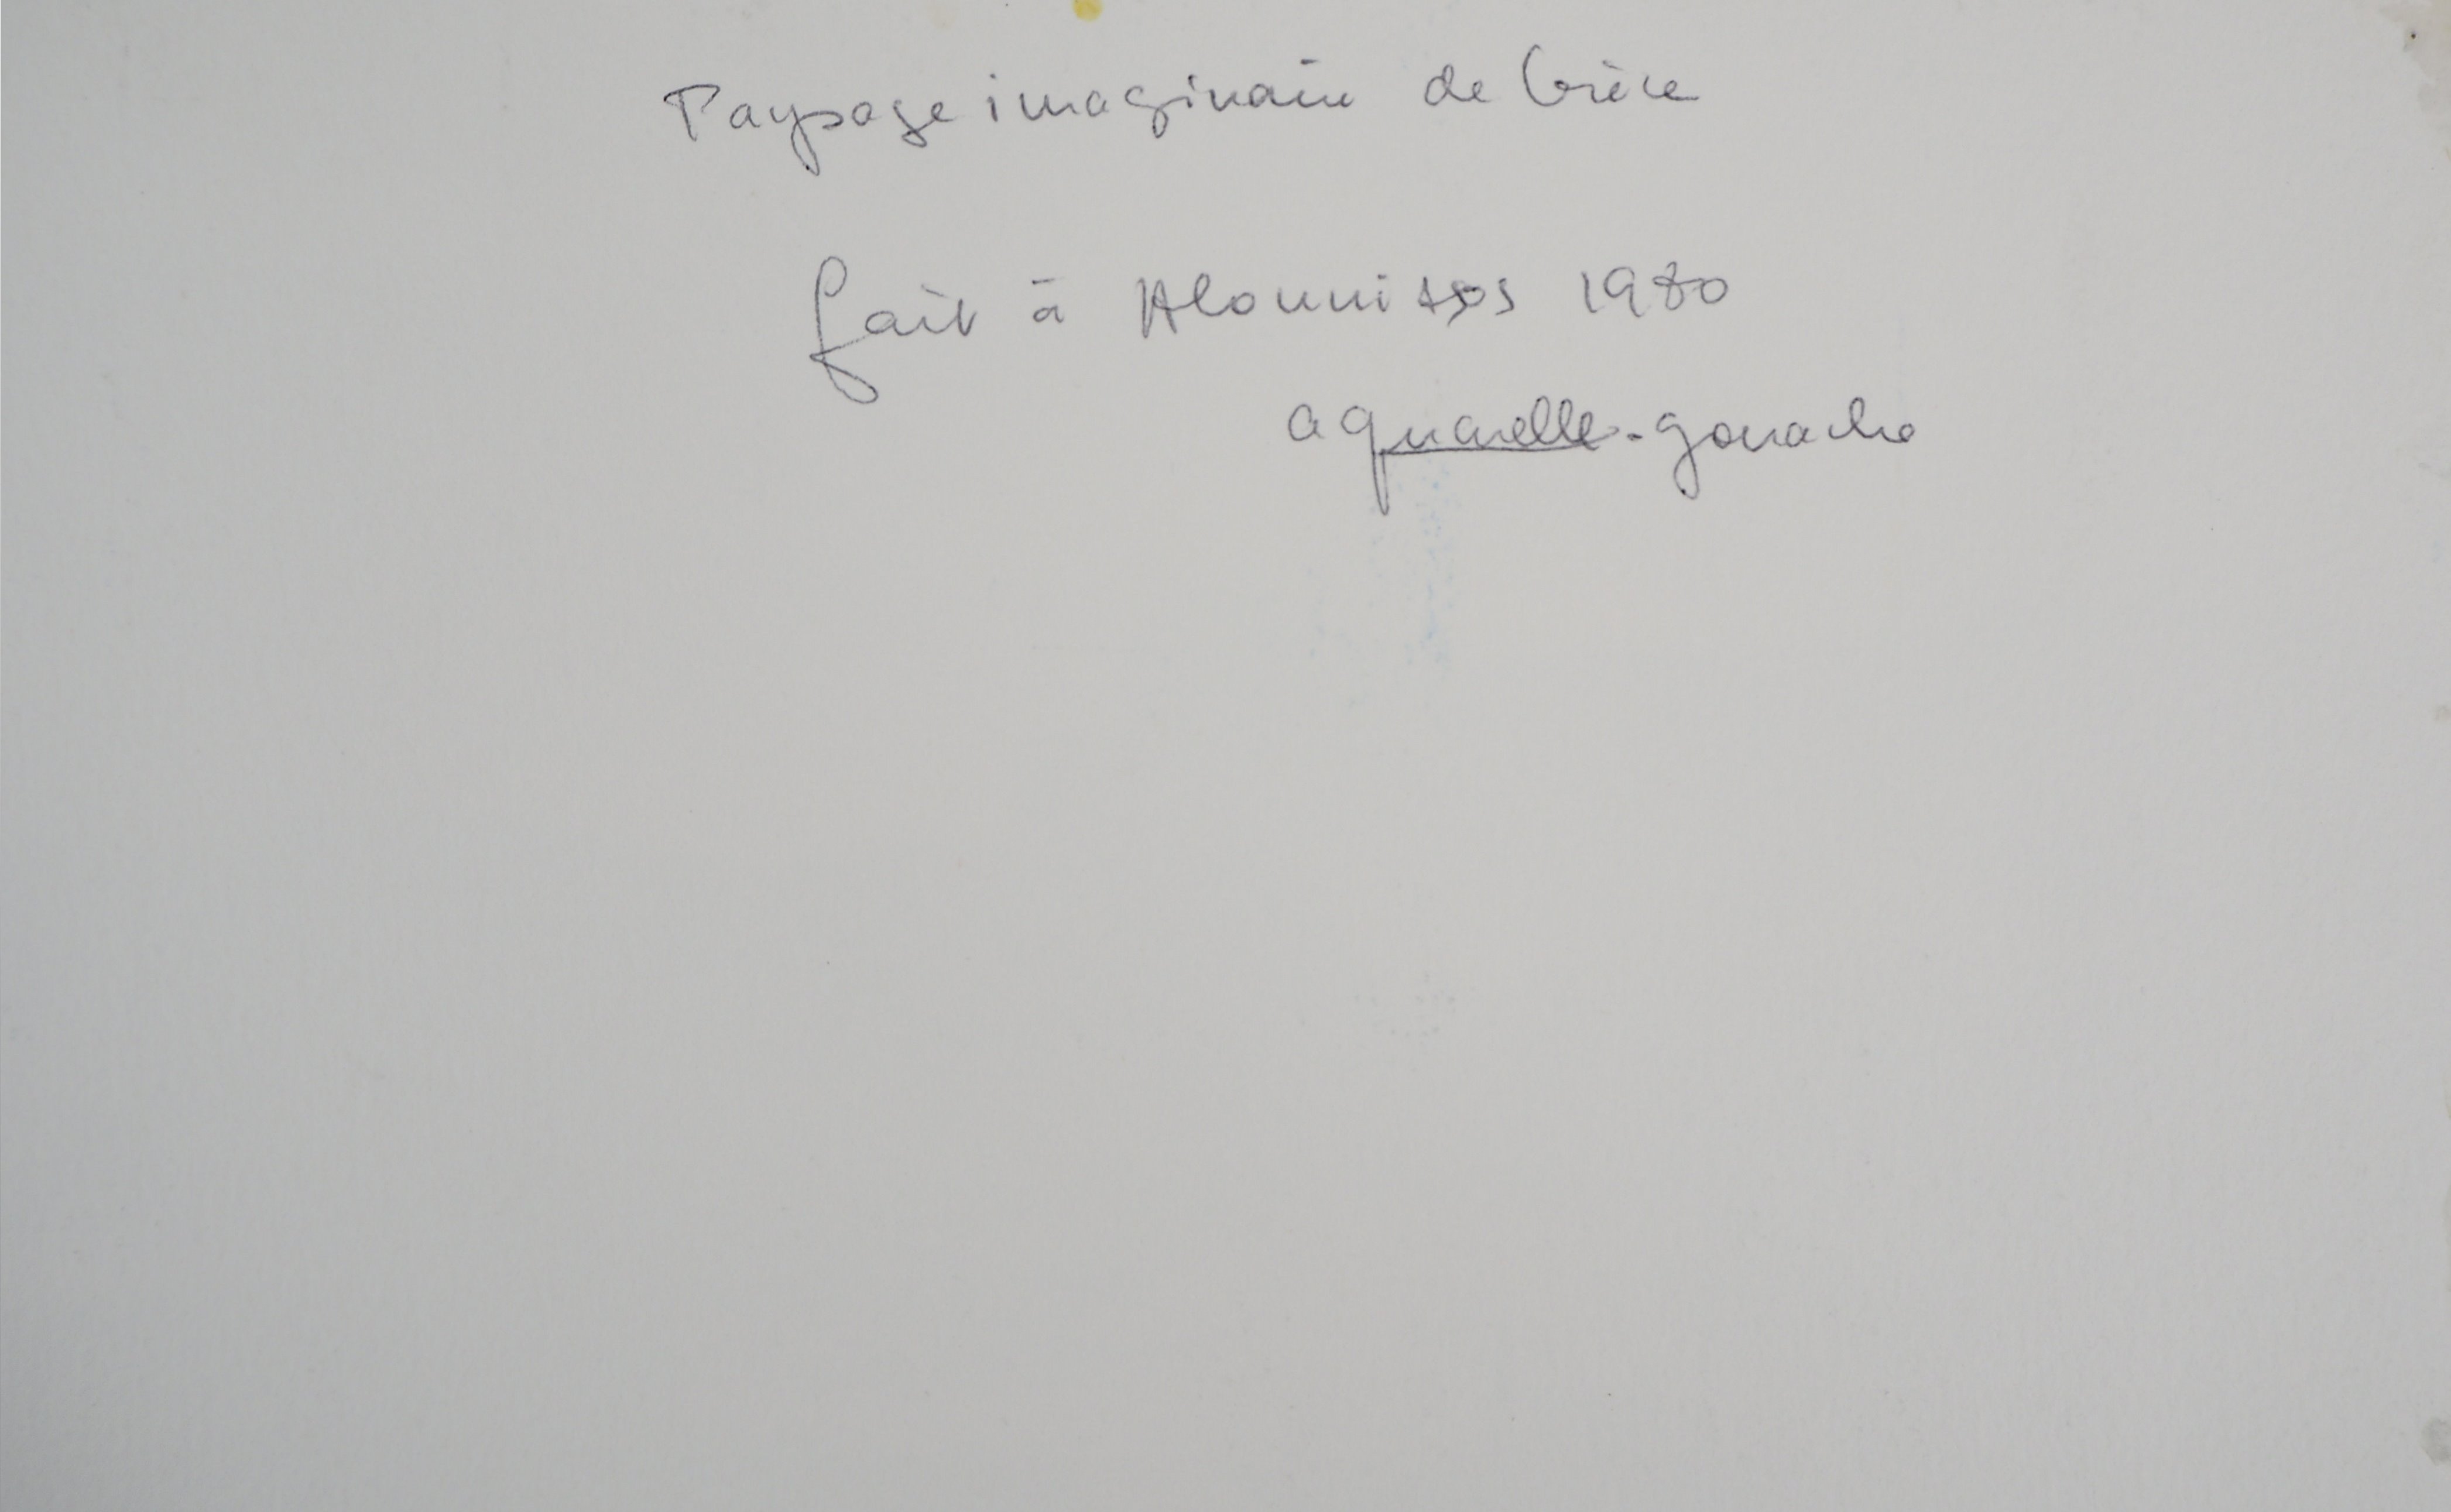 Paysage imaginaire de Grèce
fait à Alonnissos 1980
aquarelle-gouache